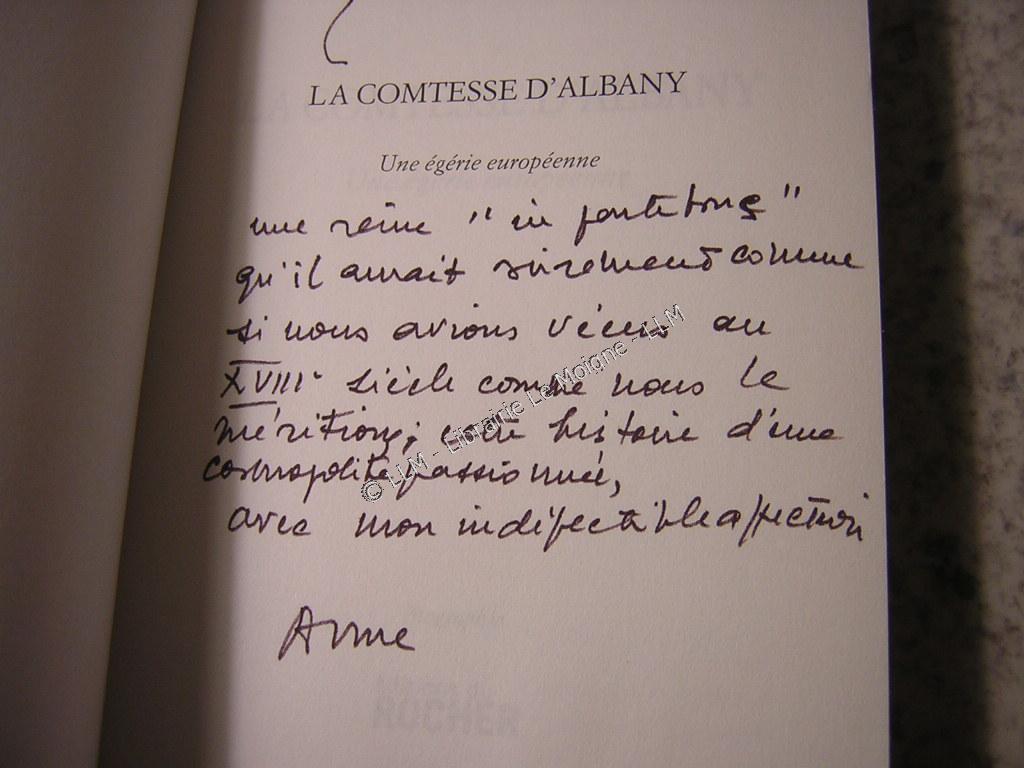 LA COMTESSE D'ALBANY
Une égérie européenne
une reine "in partibus"
qu'il aurait sûrement connue
si nous avions vécus au
XVIIIe siècle comme nous le
méritions; cette histoire d'une
cosmopolite passionnée,
avec mon indéfectible affection
Anne
© LLM - Librairie Le Moigne - LLM
ROCHER